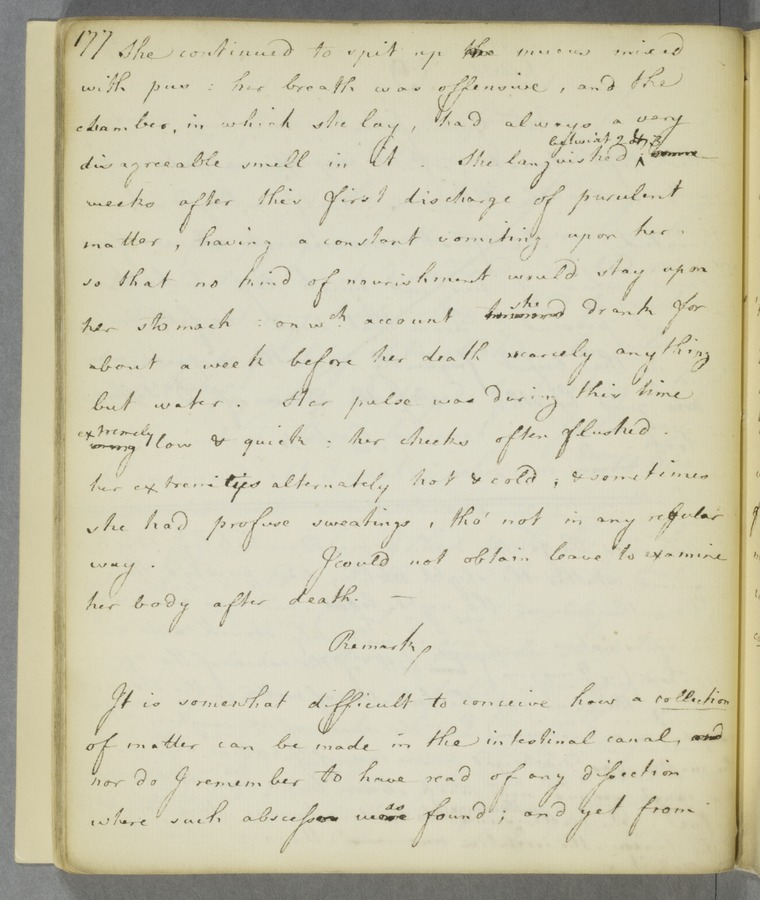 177
She continued to spit up the mucus mixed
with pus : her breath was offensive, and the
chamber, in which she lay, had always a very
disagreeable smell in it . She languished betwixt 2 & 3
weeks after this first discharge of purulent
matter, having a constant vomiting upon her.
so that no kind of nourishment would stay upon
her stomach : on wch account she drank for
about a week before her death scarcely any thing
but water . Her pulse was during this time
extremely low & quick : her cheeks often flushed .
her extremities alternately hot & cold ; & sometimes
she had profuse sweatings, tho' not in any regular
way . I could not obtain leave to examine
her body after death. —
Remarks
It is somewhat difficult to conceive how a collection
of matter can be made in the intestinal canal, and
nor do I remember to have read of any dissection
where such abscess was found ; and yet from